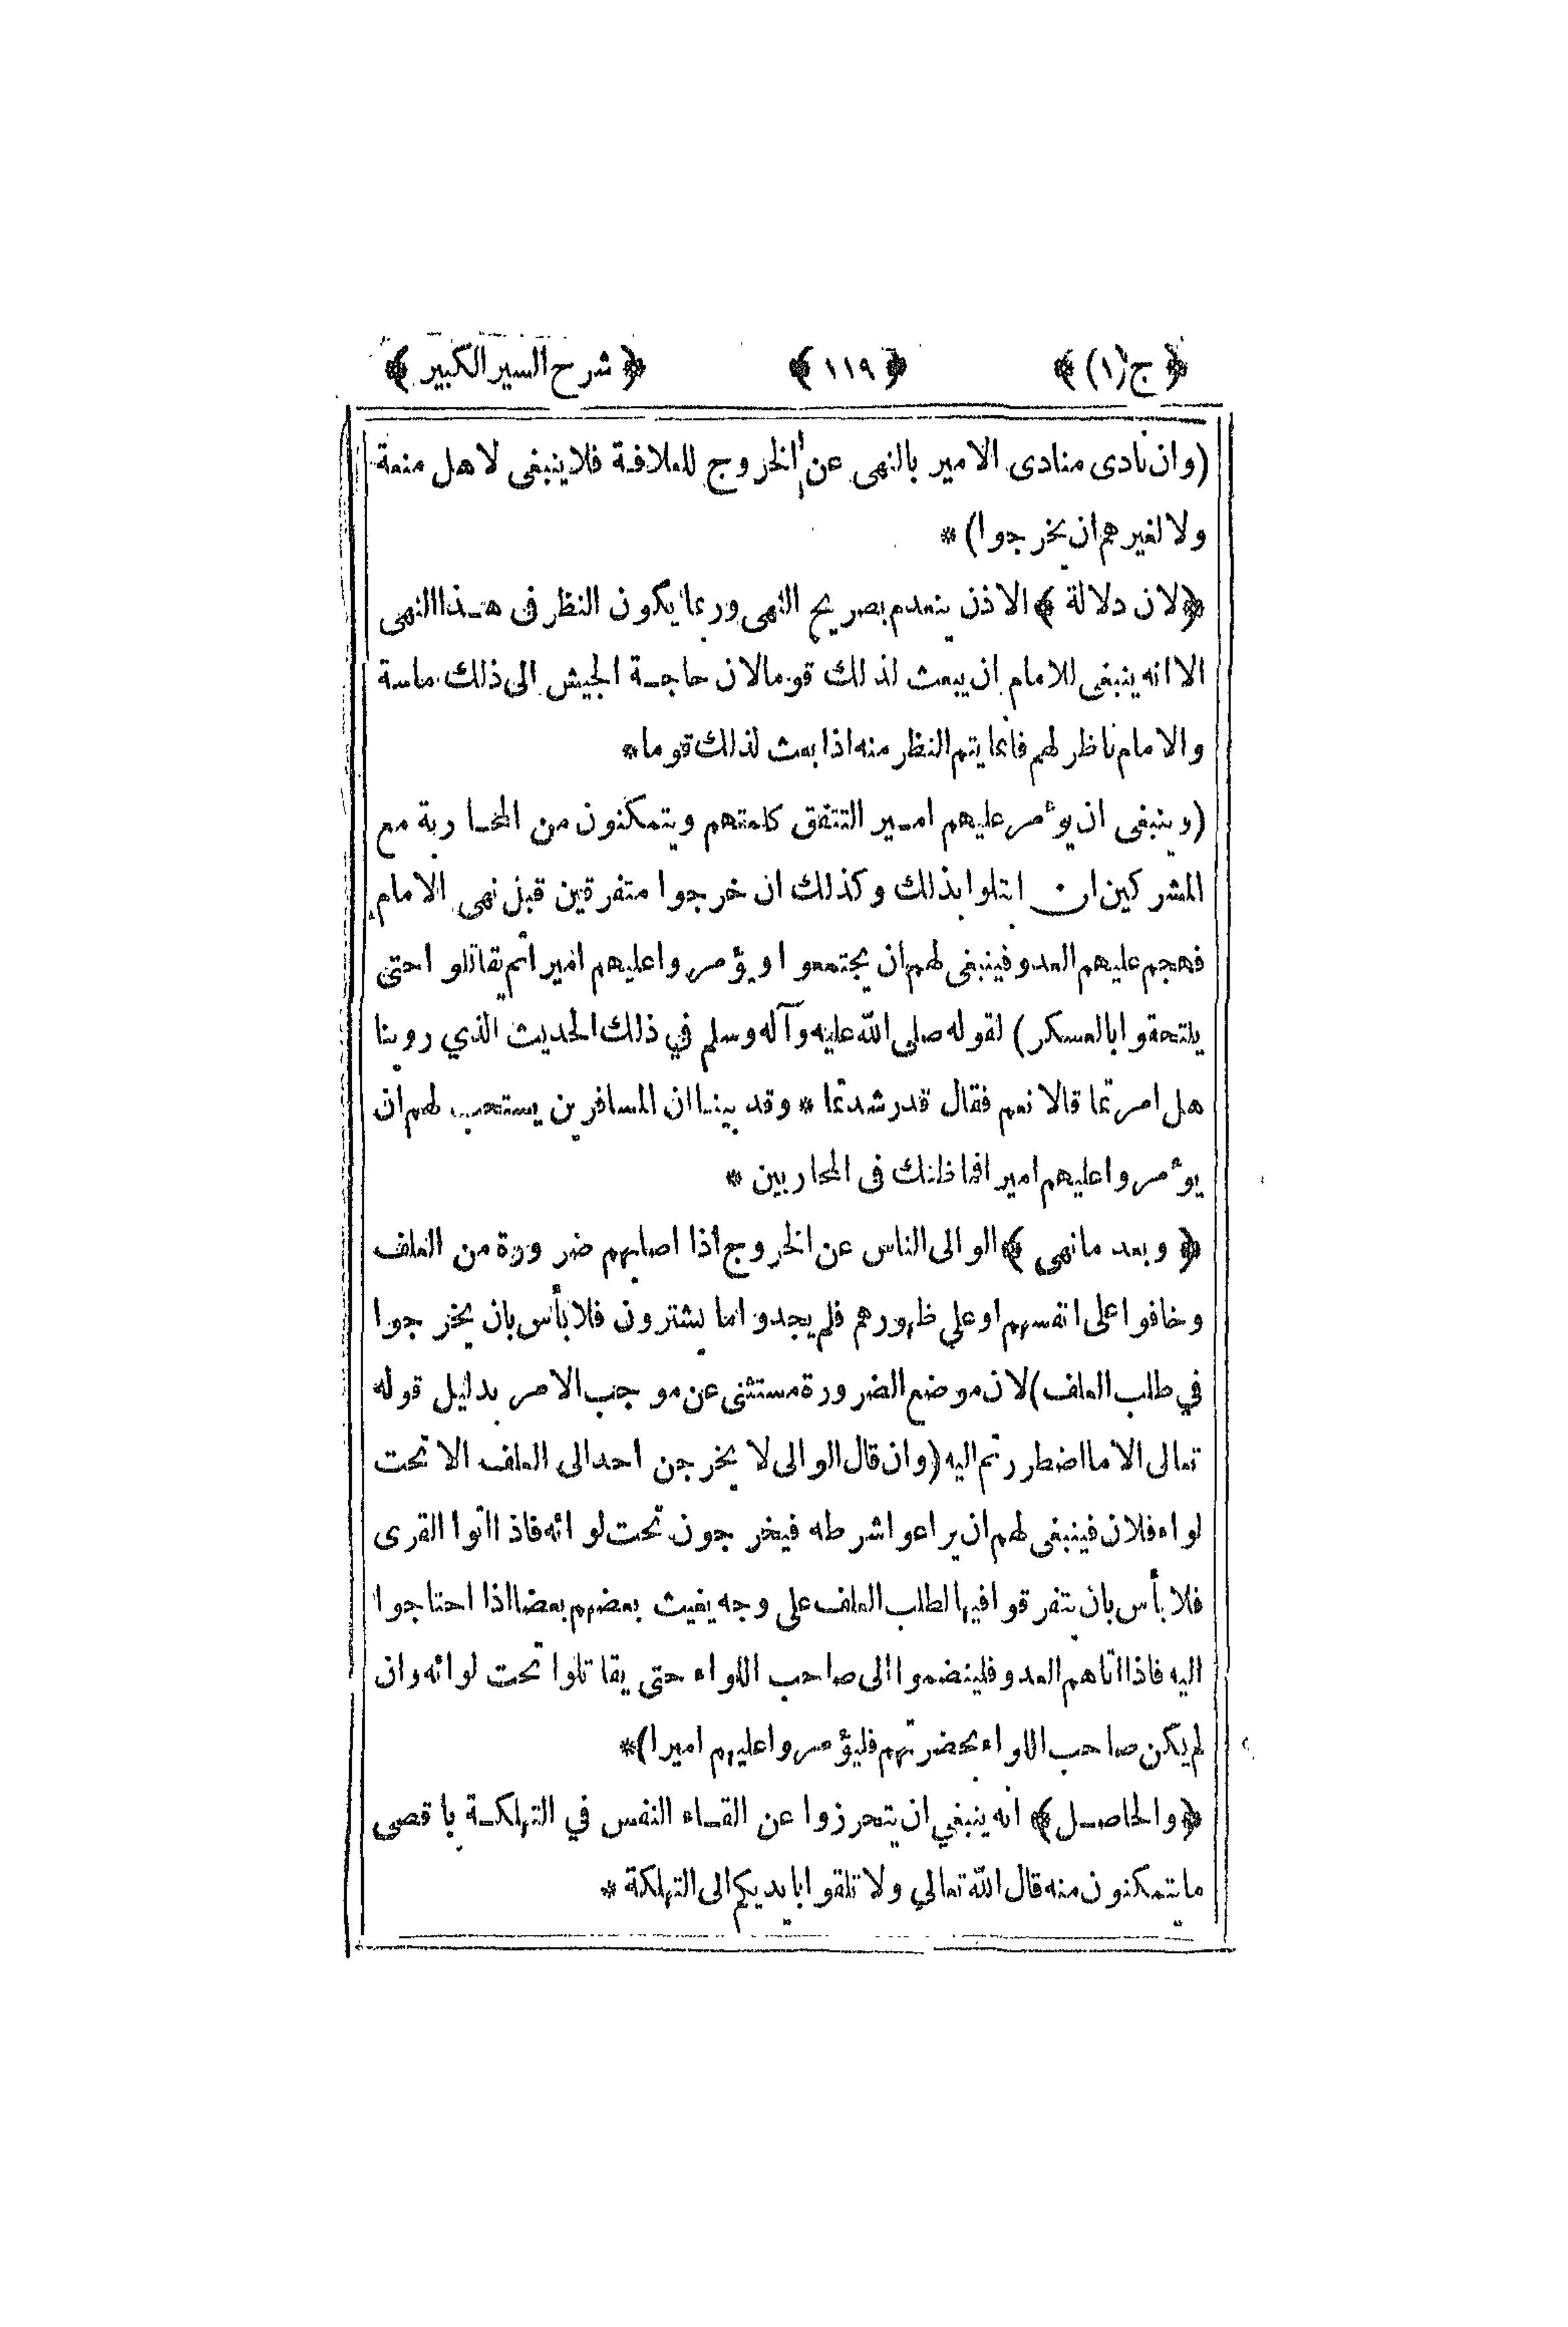 ﴿ ج (١) ﴾ ﴿ ١١٩ ﴾ ﴿ شرح السير الكبير ﴾
(وان نادى منادى الامير بالنهى عن الخروج للعلافة فلا ينبغى لاهل منعة
ولا لغيرهم ان يخرجوا) *
﴿ لان دلالة ﴾ الاذن ينعدم بصريح النهى وربما يكون النظر فى هـذا النهى
الا انه ينبغى للامام ان يبعث لذلك قوما لان حاجـة الجيش الى ذلك ماسة
والامام ناظر لهم فانما يتم النظر منه اذا بعث لذلك قوما *
(وينبغى ان يؤمر عليهم امـير التتفق كلمتهم ويتمكنون من المحـاربة مع
المشركين ان ابتلوا بذلك وكذلك ان خرجوا متفرقين قبل نهى الامام
فهجم عليهم العدو فينبغى لهم ان يجتمعوا ويؤمروا عليهم اميرا ثم يقاتلوا حتى
يلتحقوا بالعسكر) لقوله صلى الله عليه وآله وسلم في ذلك الحديث الذي روينا
هل امرتما قالا نعم فقال قد رشدتما * وقد بينـا ان المسافرين يستحب لهم ان
يؤمروا عليهم اميرا فما ظنك فى المحاربين *
﴿ وبعد ما نهى ﴾ الوالى الناس عن الخروج اذا اصابهم ضرورة من العلف
وخافوا على انفسهم او علي ظهورهم فلم يجدوا ما يشترون فلا بأس بان يخرجوا
في طلب العلف) لان موضع الضرورة مستثنى عن موجب الامر بدليل قوله
تعالى الا ما اضطررتم اليه (وان قال الوالى لا يخرجن احد الى العلف الا تحت
لواء فلان فينبغى لهم ان يراعوا شرطه فيخرجون تحت لوائه فاذا اتوا القرى
فلا بأس بان يتفرقوا فيها لطلب العلف على وجه يغيث بعضهم بعضا اذا احتاجوا
اليه فاذا اتاهم العدو فلينضموا الى صاحب اللواء حتى يقاتلوا تحت لوائه وان
لم يكن صاحب اللواء بحضرتهم فليؤمروا عليهم اميرا) *
﴿ والحاصـل ﴾ انه ينبغي ان يتحرزوا عن القـاء النفس في التهلكـة باقصى
ما يتمكنون منه قال الله تعالي ولا تلقوا بايديكم الى التهلكة *